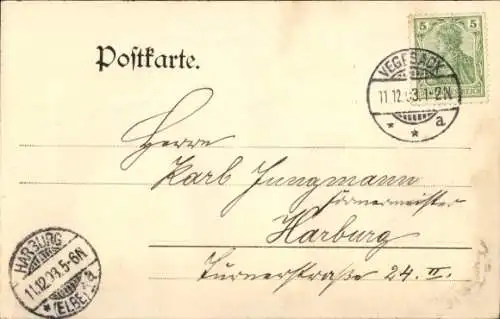 Postkarte.
5 5
VEGESACK
11.12.03.1-2N
* * a
Herrn
Karl Jungmann
Harburg
Turnerstraße 24. II.
HARBURG
11.12.03.5-6N
* (ELBE) a